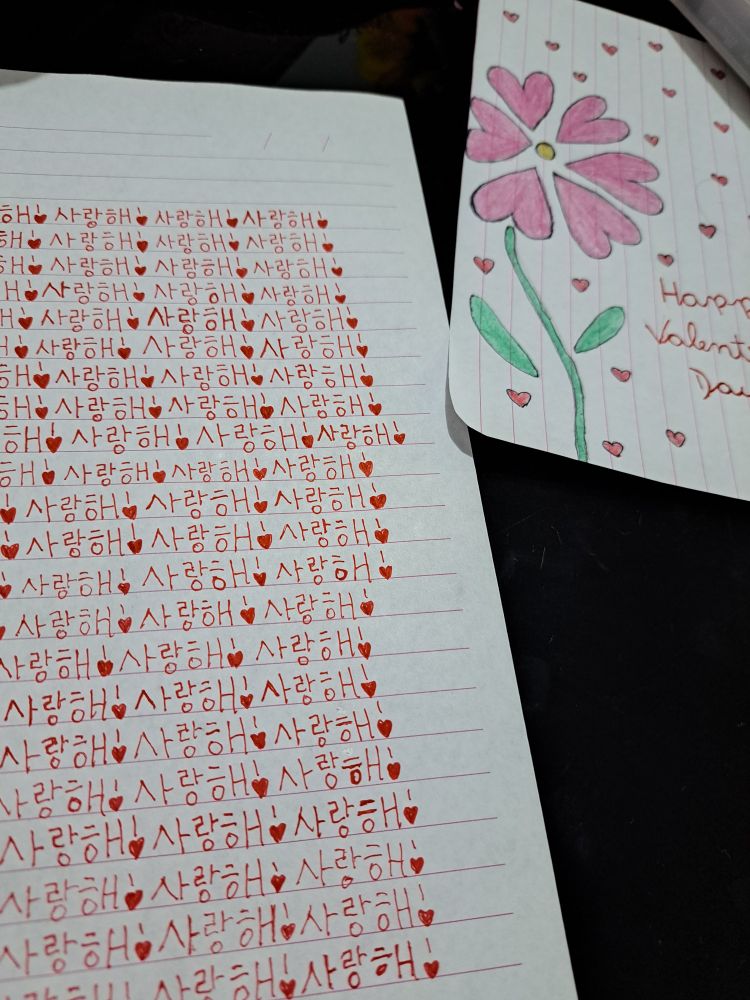 해! 사랑해! 사랑해! 사랑해!
해! 사랑해! 사랑해! 사랑해!
해! 사랑해! 사랑해! 사랑해!
사랑해! 사랑해! 사랑해!
사랑해! 사랑해! 사랑해!
사랑해! 사랑해! 사랑해!
해! 사랑해! 사랑해! 사랑해!
해! 사랑해! 사랑해! 사랑해!
해! 사랑해! 사랑해! 사랑해!
해! 사랑해! 사랑해! 사랑해!
사랑해! 사랑해! 사랑해!
사랑해! 사랑해! 사랑해!
사랑해! 사랑해! 사랑해!
사랑해! 사랑해! 사랑해!
사랑해! 사랑해! 사랑해!
사랑해! 사랑해! 사랑해!
사랑해! 사랑해! 사랑해!
사랑해! 사랑해! 사랑해!
사랑해! 사랑해! 사랑해!
사랑해! 사랑해! 사랑해!
사랑해! 사랑해! 사랑해!
사랑해! 사랑해!
Happ
Valent
Day